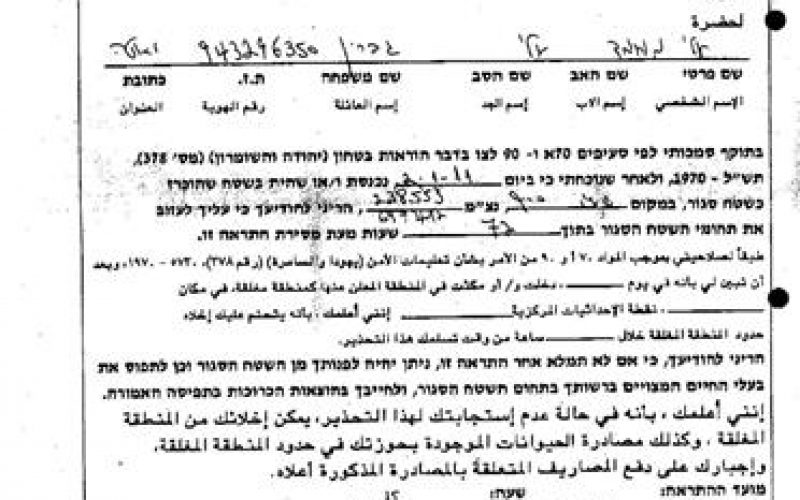 لحضرة
עלי מחמד עלי 943296350
שם פרטי שם האב שם הסב שם משפחה ת.ז. כתובת
الإسم الشخصي إسم الاب إسم الجد إسم العائلة رقم الهوية العنوان
בתוקף סמכותי לפי סעיפים 70א ו- 90 לצו בדבר הוראות בטחון (יהודה והשומרון) (מס' 378),
תש"ל - 1970, ולאחר שנוכחתי כי ביום 2.1.11 נכנסת ו/או שהית בשטח שהוכרז
כשטח סגור, במקום 900 נצ"מ 228553 , הריני להודיעך כי עליך לעזוב
את תחומי השטח הסגור בתוך 72 שעות מעת מסירת התראה זו.
طبقاً لصلاحيتي بموجب المواد ٧٠ أ و ٩٠ من الأمر بشأن تعليمات الأمن (يهودا والسامرة) (رقم ٣٧٨)، ٥٧٣٠ - ١٩٧٠، وبعد
أن تبين لي بأنه في يوم ______ دخلت و/ أو مكثت في المنطقة المعلن منها كمنطقة مغلقة، في مكان
______ نقطة الإحداثيات المركزية ______ إنني أعلمك ، بأنه يتحتم عليك إخلاء
حدود المنطقة المغلقة خلال ______ ساعة من وقت تسلمك هذا التحذير.
הריני להודיעך, כי אם לא תמלא אחר התראה זו, ניתן יהיה לפנותך מן השטח הסגור וכן לתפוס את
בעלי החיים המצויים ברשותך בתחום השטח הסגור, ולחייבך בהוצאות הכרוכות בתפיסה האמורה.
إنني أعلمك ، بأنه في حالة عدم إستجابتك لهذا التحذير، يمكن إخلائك من المنطقة
المغلقة ، وكذلك مصادرة الحيوانات الموجودة بحوزتك في حدود المنطقة المغلقة،
وإجبارك على دفع المصاريف المتعلقة بالمصادرة المذكورة أعلاه.
מועד ההתראה: שעה: 15